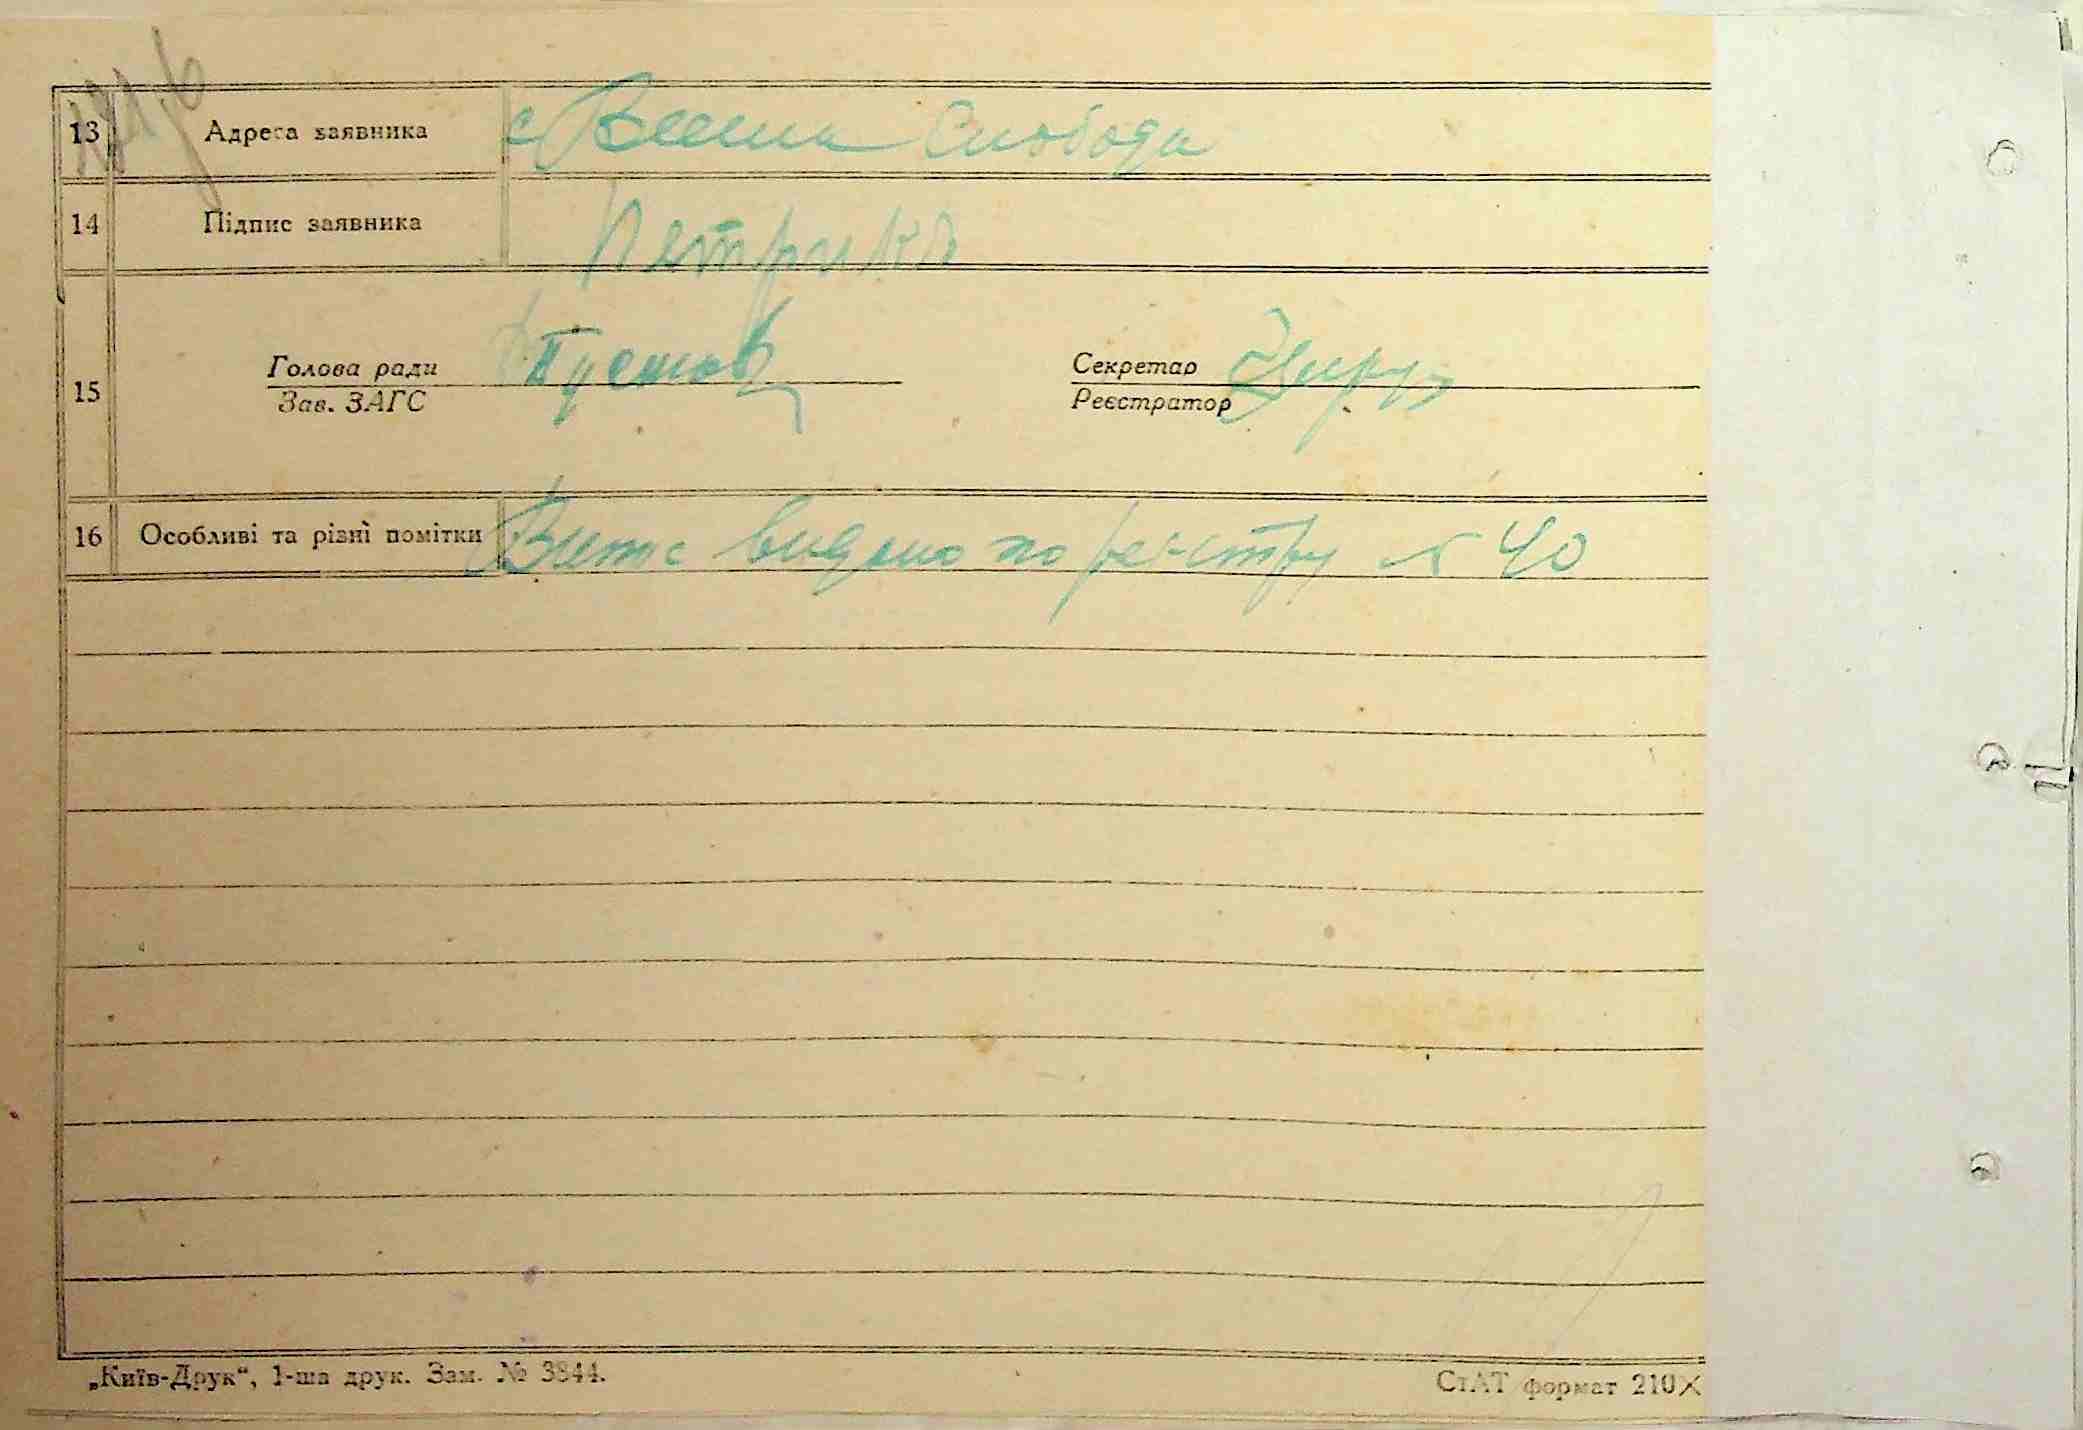 13 Адреса заявника с Слобода
14 Підпис заявника Петрико
15 Голова ради Секретар
Зав. ЗАГС Реєстратор
16 Особливі та різні помітки видано по реєстру № 40
„Київ-Друк“, 1-ша друк. Зам. № 3844.
СтАТ формат 210X